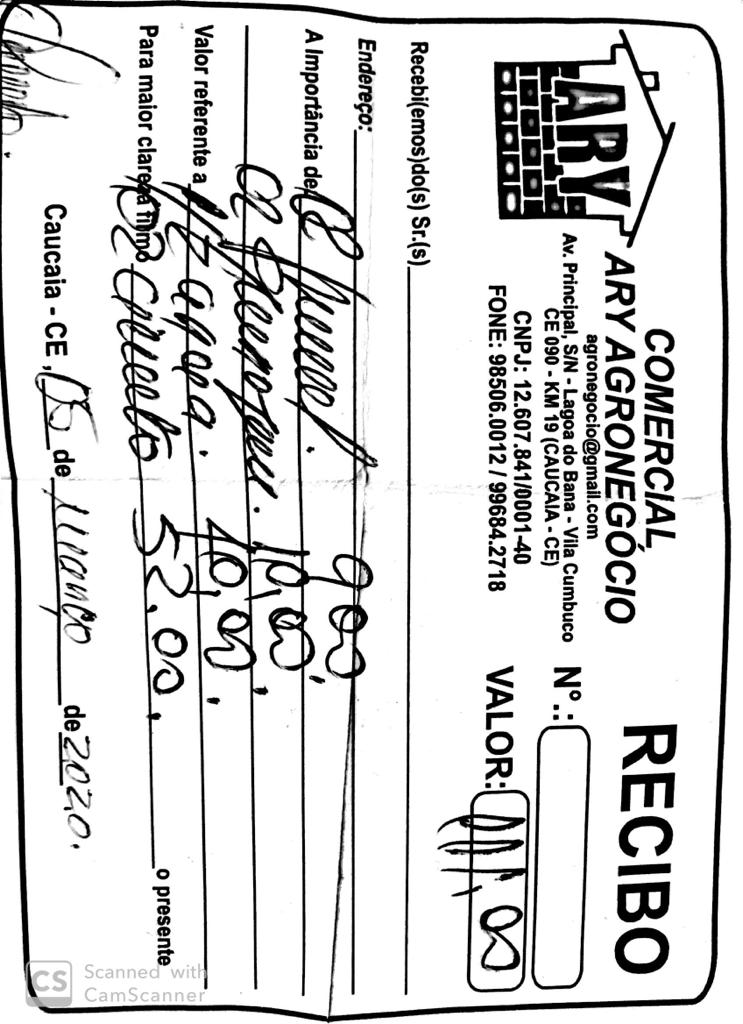 ARY
COMERCIAL
ARY AGRONEGÓCIO
agronegocio@gmail.com
Av. Principal, S/N - Lagoa do Bana - Vila Cumbuco
CE 090 - KM 19 (CAUCAIA - CE)
CNPJ: 12.607.841/0001-40
FONE: 98506.0012 / 99684.2718
RECIBO
Nº.:
VALOR: 111,00
Recebi(emos)do(s) Sr.(s)
Endereço:
9,00
A Importância de 02
02 10,00.
Valor referente a 40,00.
Para maior clareza firmo 02 52,00. o presente
Caucaia - CE, 05 de março de 2020.
CS Scanned with
CamScanner